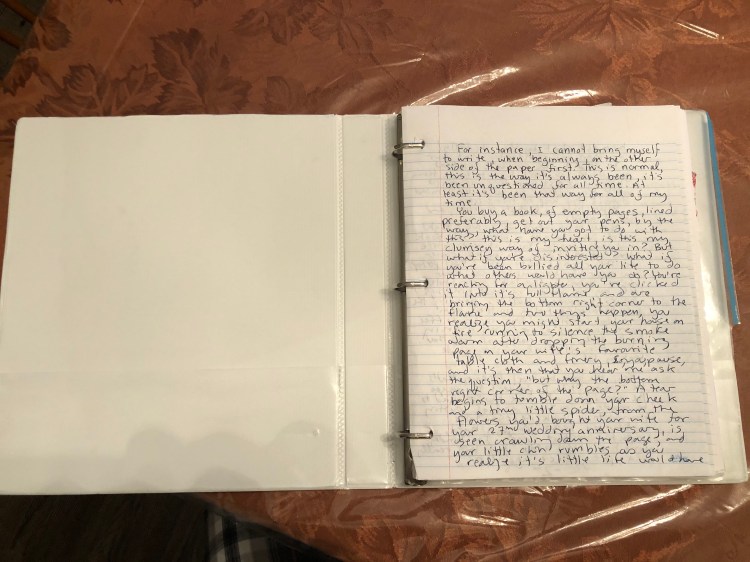 For instance, I cannot bring myself
to write, when beginning on the other
side of the paper first. This is normal,
this is the way it's always been, it's
been unquestioned for all time. At
least it's been that way for all of my
time.
You buy a book, of empty pages, lined
preferably, get out your pens, by the
way, what have you got to do with
this, this is my heart, is this my
clumsey way of inviting you in? But
what if you're disinterested? What if
you're been bullied all your life to do
what others would have you do? You're
reaching for a lighter, you're clicked
it into it's full flame and are
bringing the bottom right corner to the
flame and two things happen, you
realize you might start your house on
fire running to silence the smoke
alarm after dropping the burning
page on your wife's favourite
table cloth and
and it's then that you hear me ask
the question, "but why the bottom
right corner of the page?" A tear
begins to tumble down your cheek
and a tiny little spider, from the
flowers you'd bought your wife for
your 27nd wedding anniversary, is
seen crawling down the page, and
your little chin rumbles as you
realize it's little life would have